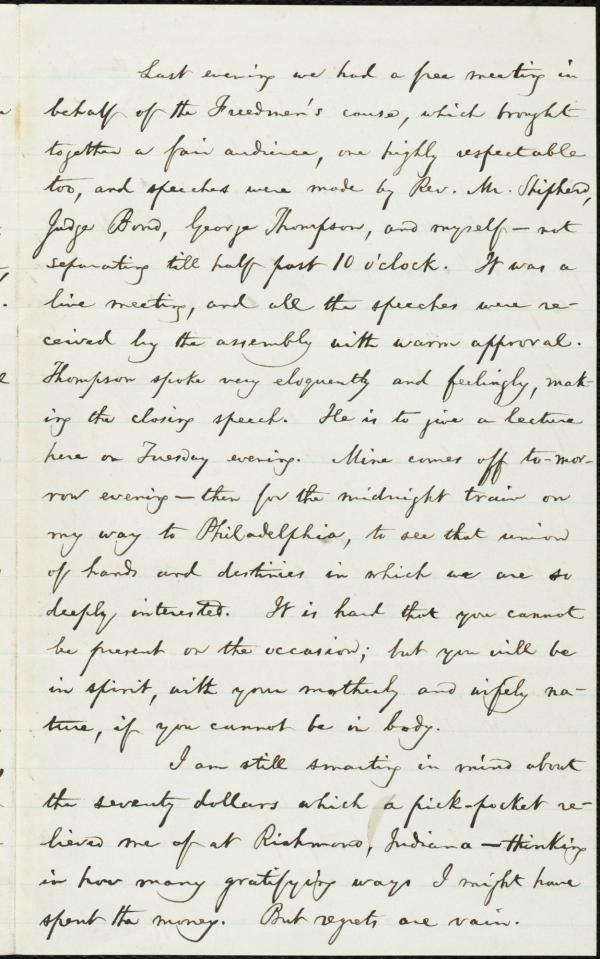 Last evening we had a free meeting in
behalf of the Freedmen's cause, which brought
together a fair audience, one highly respectable
too, and speeches were made by Rev. Mr. Shipherd,
Judge Bond, George Thompson, and myself — not
separating till half past 10 o'clock. It was a
live meeting, and all the speeches were re-
ceived by the assembly with warm approval.
Thompson spoke very eloquently and feelingly, mak-
ing the closing speech. He is to give a lecture
here on Tuesday evening. Mine comes off to-mor-
row evening — then for the midnight train on
my way to Philadelphia, to see that union
of hands and destinies in which we are so
deeply interested. It is hard that you cannot
be present on the occasion; but you will be
in spirit, with your motherly and wifely na-
ture, if you cannot be in body.
I am still smarting in mind about
the seventy dollars which a pick-pocket re-
lieved me of at Richmond, Indiana — thinking
in how many gratifying ways I might have
spent the money. But regrets are vain.